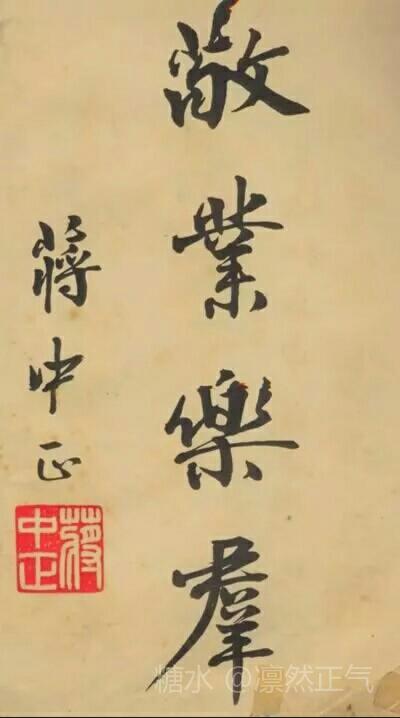 敬業樂羣
蔣中正
蔣中正
糖水 @凛然正气